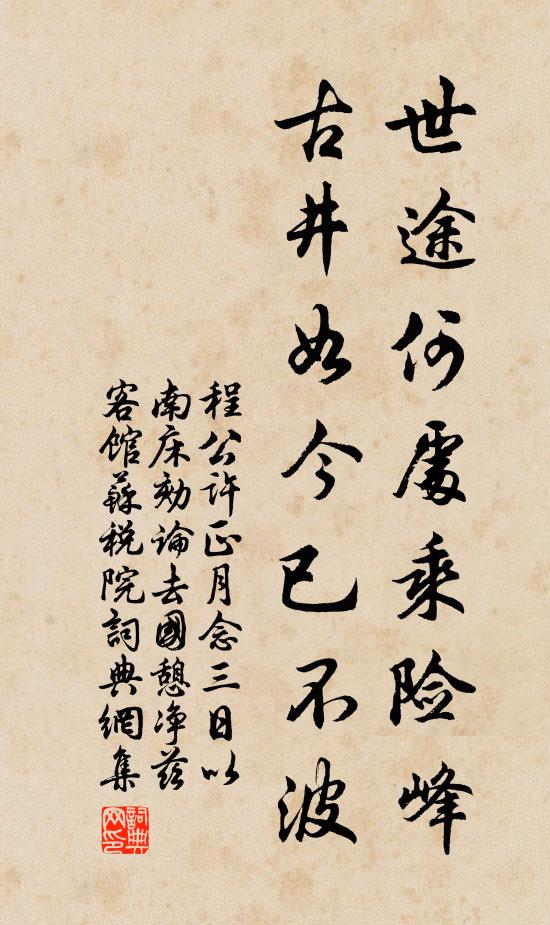 世途何處乘险峰
古井如今已不波
程公許正月念三日以
南床劾論去國憩净兹
客館蘇税院詞典網集
詞典网印